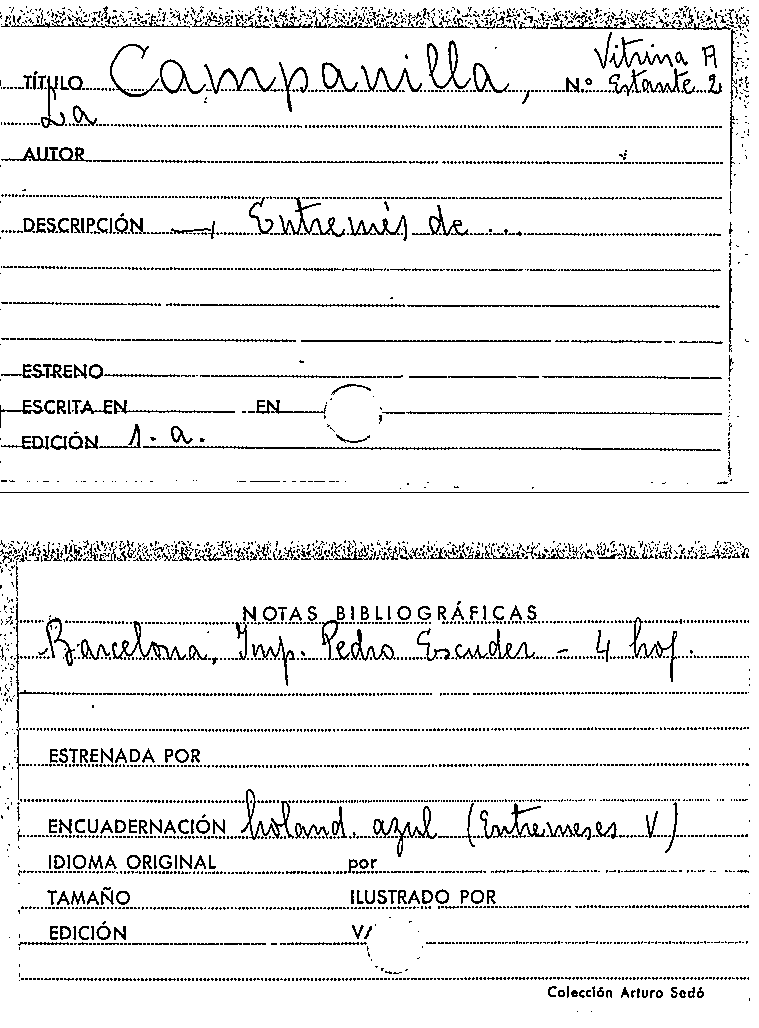 Vitrina A
TÍTULO Campanilla, N.º Estante 2
La
AUTOR
DESCRIPCIÓN — Entremés de ...
ESTRENO
ESCRITA EN EN
EDICIÓN 1. a.
NOTAS BIBLIOGRÁFICAS
Barcelona, Imp. Pedro Escuder - 4 hoj.
ESTRENADA POR
ENCUADERNACIÓN holand. azul (Entremeses V)
IDIOMA ORIGINAL por
TAMAÑO ILUSTRADO POR
EDICIÓN V/
Colección Arturo Sedó